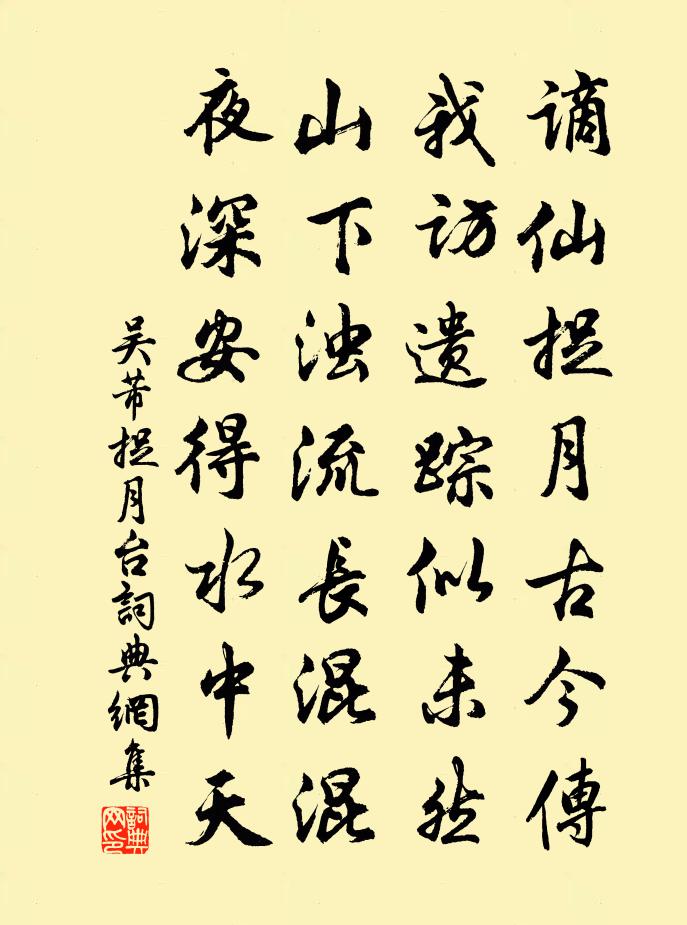 谪仙捉月古今傳
我访遗踪似未然
山下浊流長混混
夜深安得水中天
吴芾捉月台詞典網集
詞典